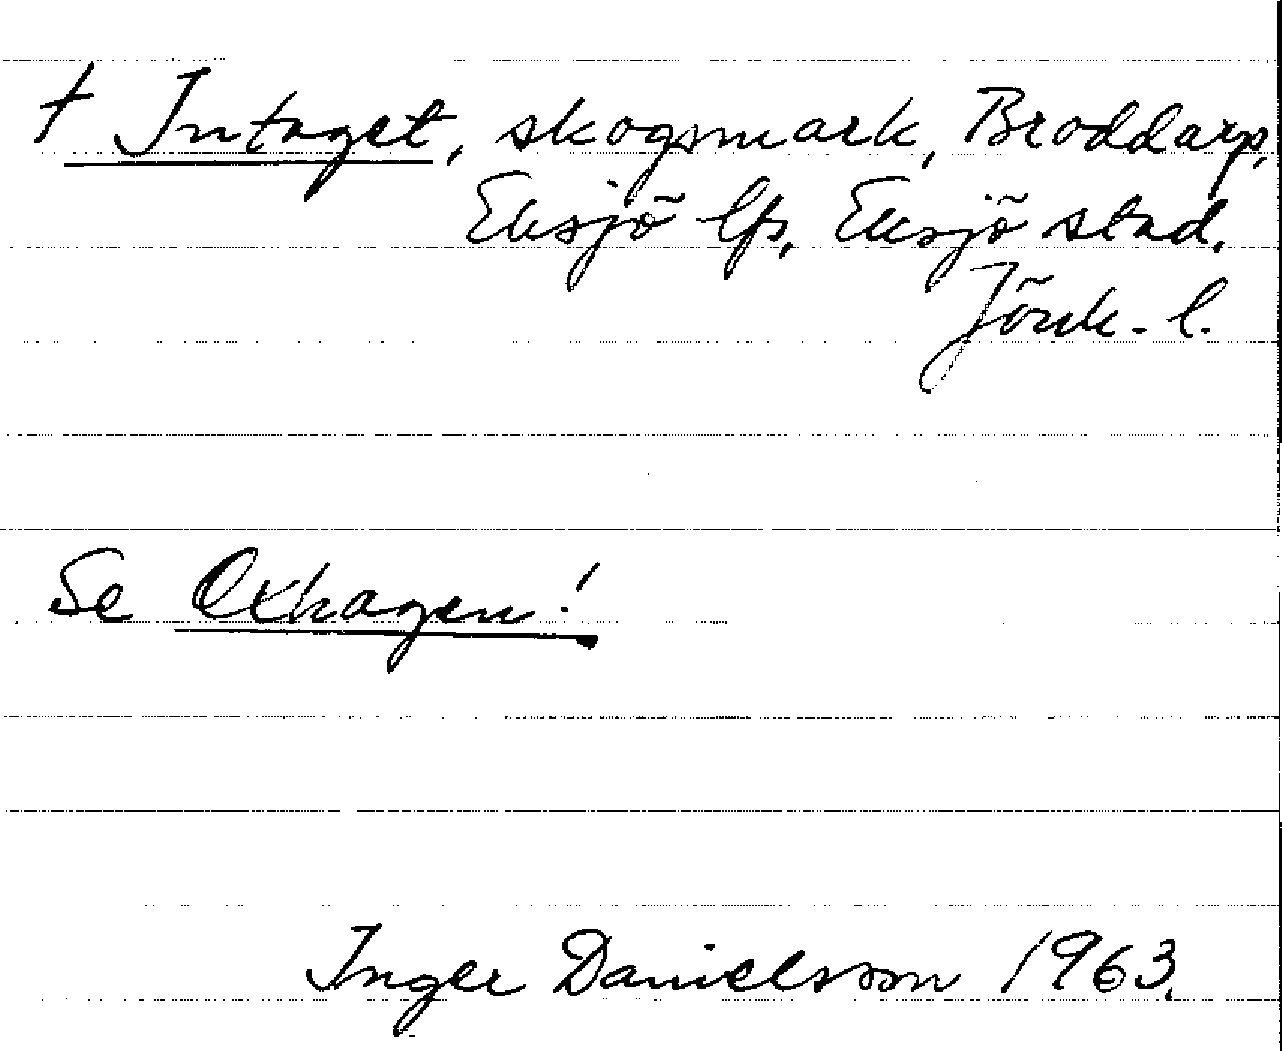 † Intaget, skogsmark, Broddarp,
Eksjö lfs, Eksjö stad,
Jönk. l.
Se Oxhagen!
Inger Danielsson 1963.